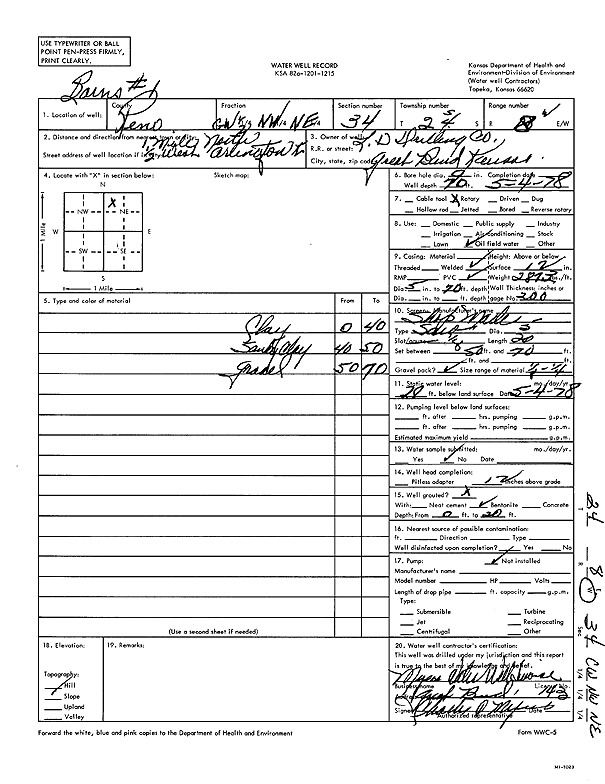 USE TYPEWRITER OR BALL
POINT PEN-PRESS FIRMLY,
PRINT CLEARLY.
WATER WELL RECORD
KSA 82a-1201-1215
Kansas Department of Health and
Environment-Division of Environment
(Water well Contractors)
Topeka, Kansas 66620
Bains #1
1. Location of well: County Reno Fraction CW½ NW¼ NE¼ Section number 34 Township number 24 S Range number R 8 E/W
2. Distance and direction from nearest town or city: 1 Mile North
Street address of well location if in city: 2 West Arlington
3. Owner of well: Drilling Co.
R.R. or street:
City, state, zip code: Great Bend Kansas
4. Locate with "X" in section below: Sketch map:
N
X
NW NE
W E
1 Mile
SW SE
S
1 Mile
5. Type and color of material From To
Clay 0 40
Sandy Clay 40 50
Gravel 50 70
(Use a second sheet if needed)
6. Bore hole dia. 9 in. Completion date
Well depth 70 ft. 5-4-78
7. Cable tool X Rotary Driven Dug
Hollow rod Jetted Bored Reverse rotary
8. Use: Domestic Public supply Industry
Irrigation Air conditioning Stock
Lawn ✓ Oil field water Other
9. Casing: Material Height: Above or below
Threaded Welded ✓ Surface 12 in.
RMP PVC ✓ Weight lbs./ft.
Dia. 5 in. to 70 ft. depth Wall Thickness: inches or
Dia. in. to ft. depth gage No. 300
10. Screen: Manufacturer's name
Shop Made
Type Dia. 5
Slot/gauze Length 20
Set between 50 ft. and 70 ft.
ft. and ft.
Gravel pack? ✓ Size range of material
11. Static water level: mo./day/yr.
20 ft. below land surface Date 5-4-78
12. Pumping level below land surfaces:
ft. after hrs. pumping g.p.m.
ft. after hrs. pumping g.p.m.
Estimated maximum yield g.p.m.
13. Water sample submitted: mo./day/yr.
Yes ✓ No Date
14. Well head completion:
Pitless adapter 12 Inches above grade
15. Well grouted? X
With: Neat cement ✓ Bentonite Concrete
Depth: From 0 ft. to 20 ft.
16. Nearest source of possible contamination:
ft. Direction Type
Well disinfected upon completion? ✓ Yes No
17. Pump: ✓ Not installed
Manufacturer's name
Model number HP Volts
Length of drop pipe ft. capacity g.p.m.
Type:
Submersible Turbine
Jet Reciprocating
Centrifugal Other
18. Elevation:
Topography:
Hill
Slope
Upland
Valley
19. Remarks:
20. Water well contractor's certification:
This well was drilled under my jurisdiction and this report
is true to the best of my knowledge and belief.
Business name License No. 143
Address Great Bend
Signed Date
Authorized representative
Forward the white, blue and pink copies to the Department of Health and Environment
Form WWC-5
24 T 8 R W 34 Sec CW NW NE
1/4 1/4 1/4